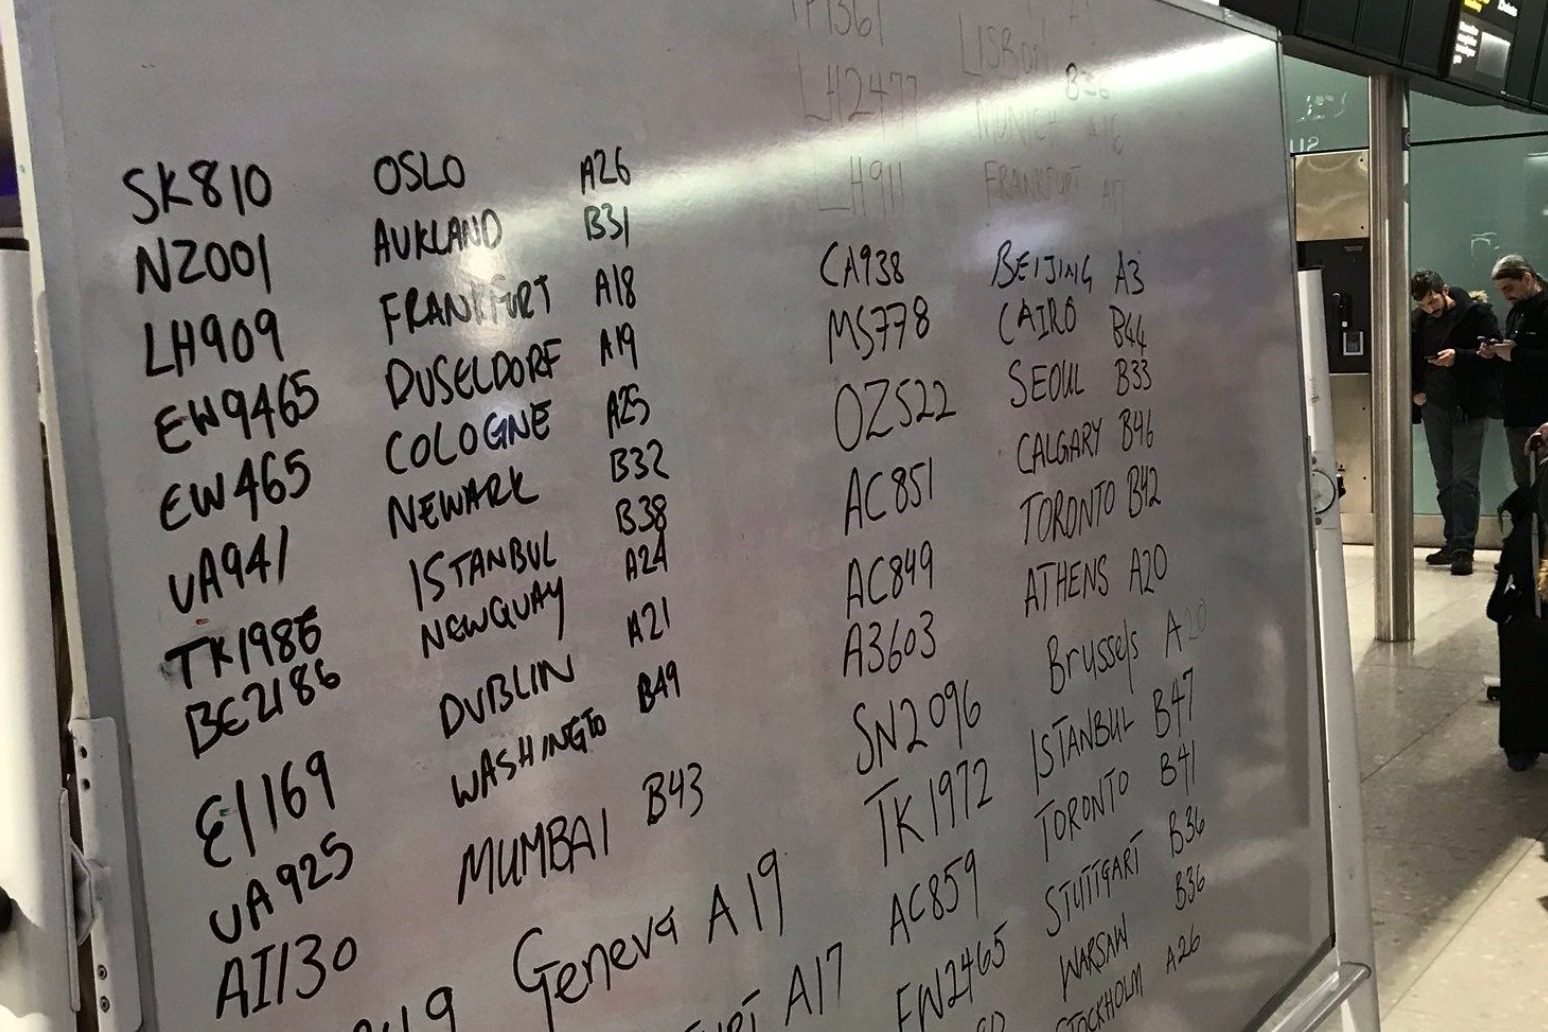 SK810 OSLO A26
NZ001 AUKLAND B31
LH909 FRANKFURT A18
EW9465 DUSELDORF A19
EW465 COLOGNE A25
UA941 NEWARK B32
TK1986 ISTANBUL B38
BE2186 NEWQUAY A24
EI169 DUBLIN A21
UA925 WASHINGTO B49
AI130 MUMBAI B43
Geneva A19
A17
LISBON
LH2477 B36
LH911 FRANKFURT
CA938 BEIJING A3
MS778 CAIRO B44
OZ522 SEOUL B33
AC851 CALGARY B46
AC849 TORONTO B42
A3603 ATHENS A20
SN2096 Brussels A20
TK1972 ISTANBUL B47
AC859 TORONTO B41
EW2465 STUTTGART B36
WARSAW B36
STOCKHOLM A26